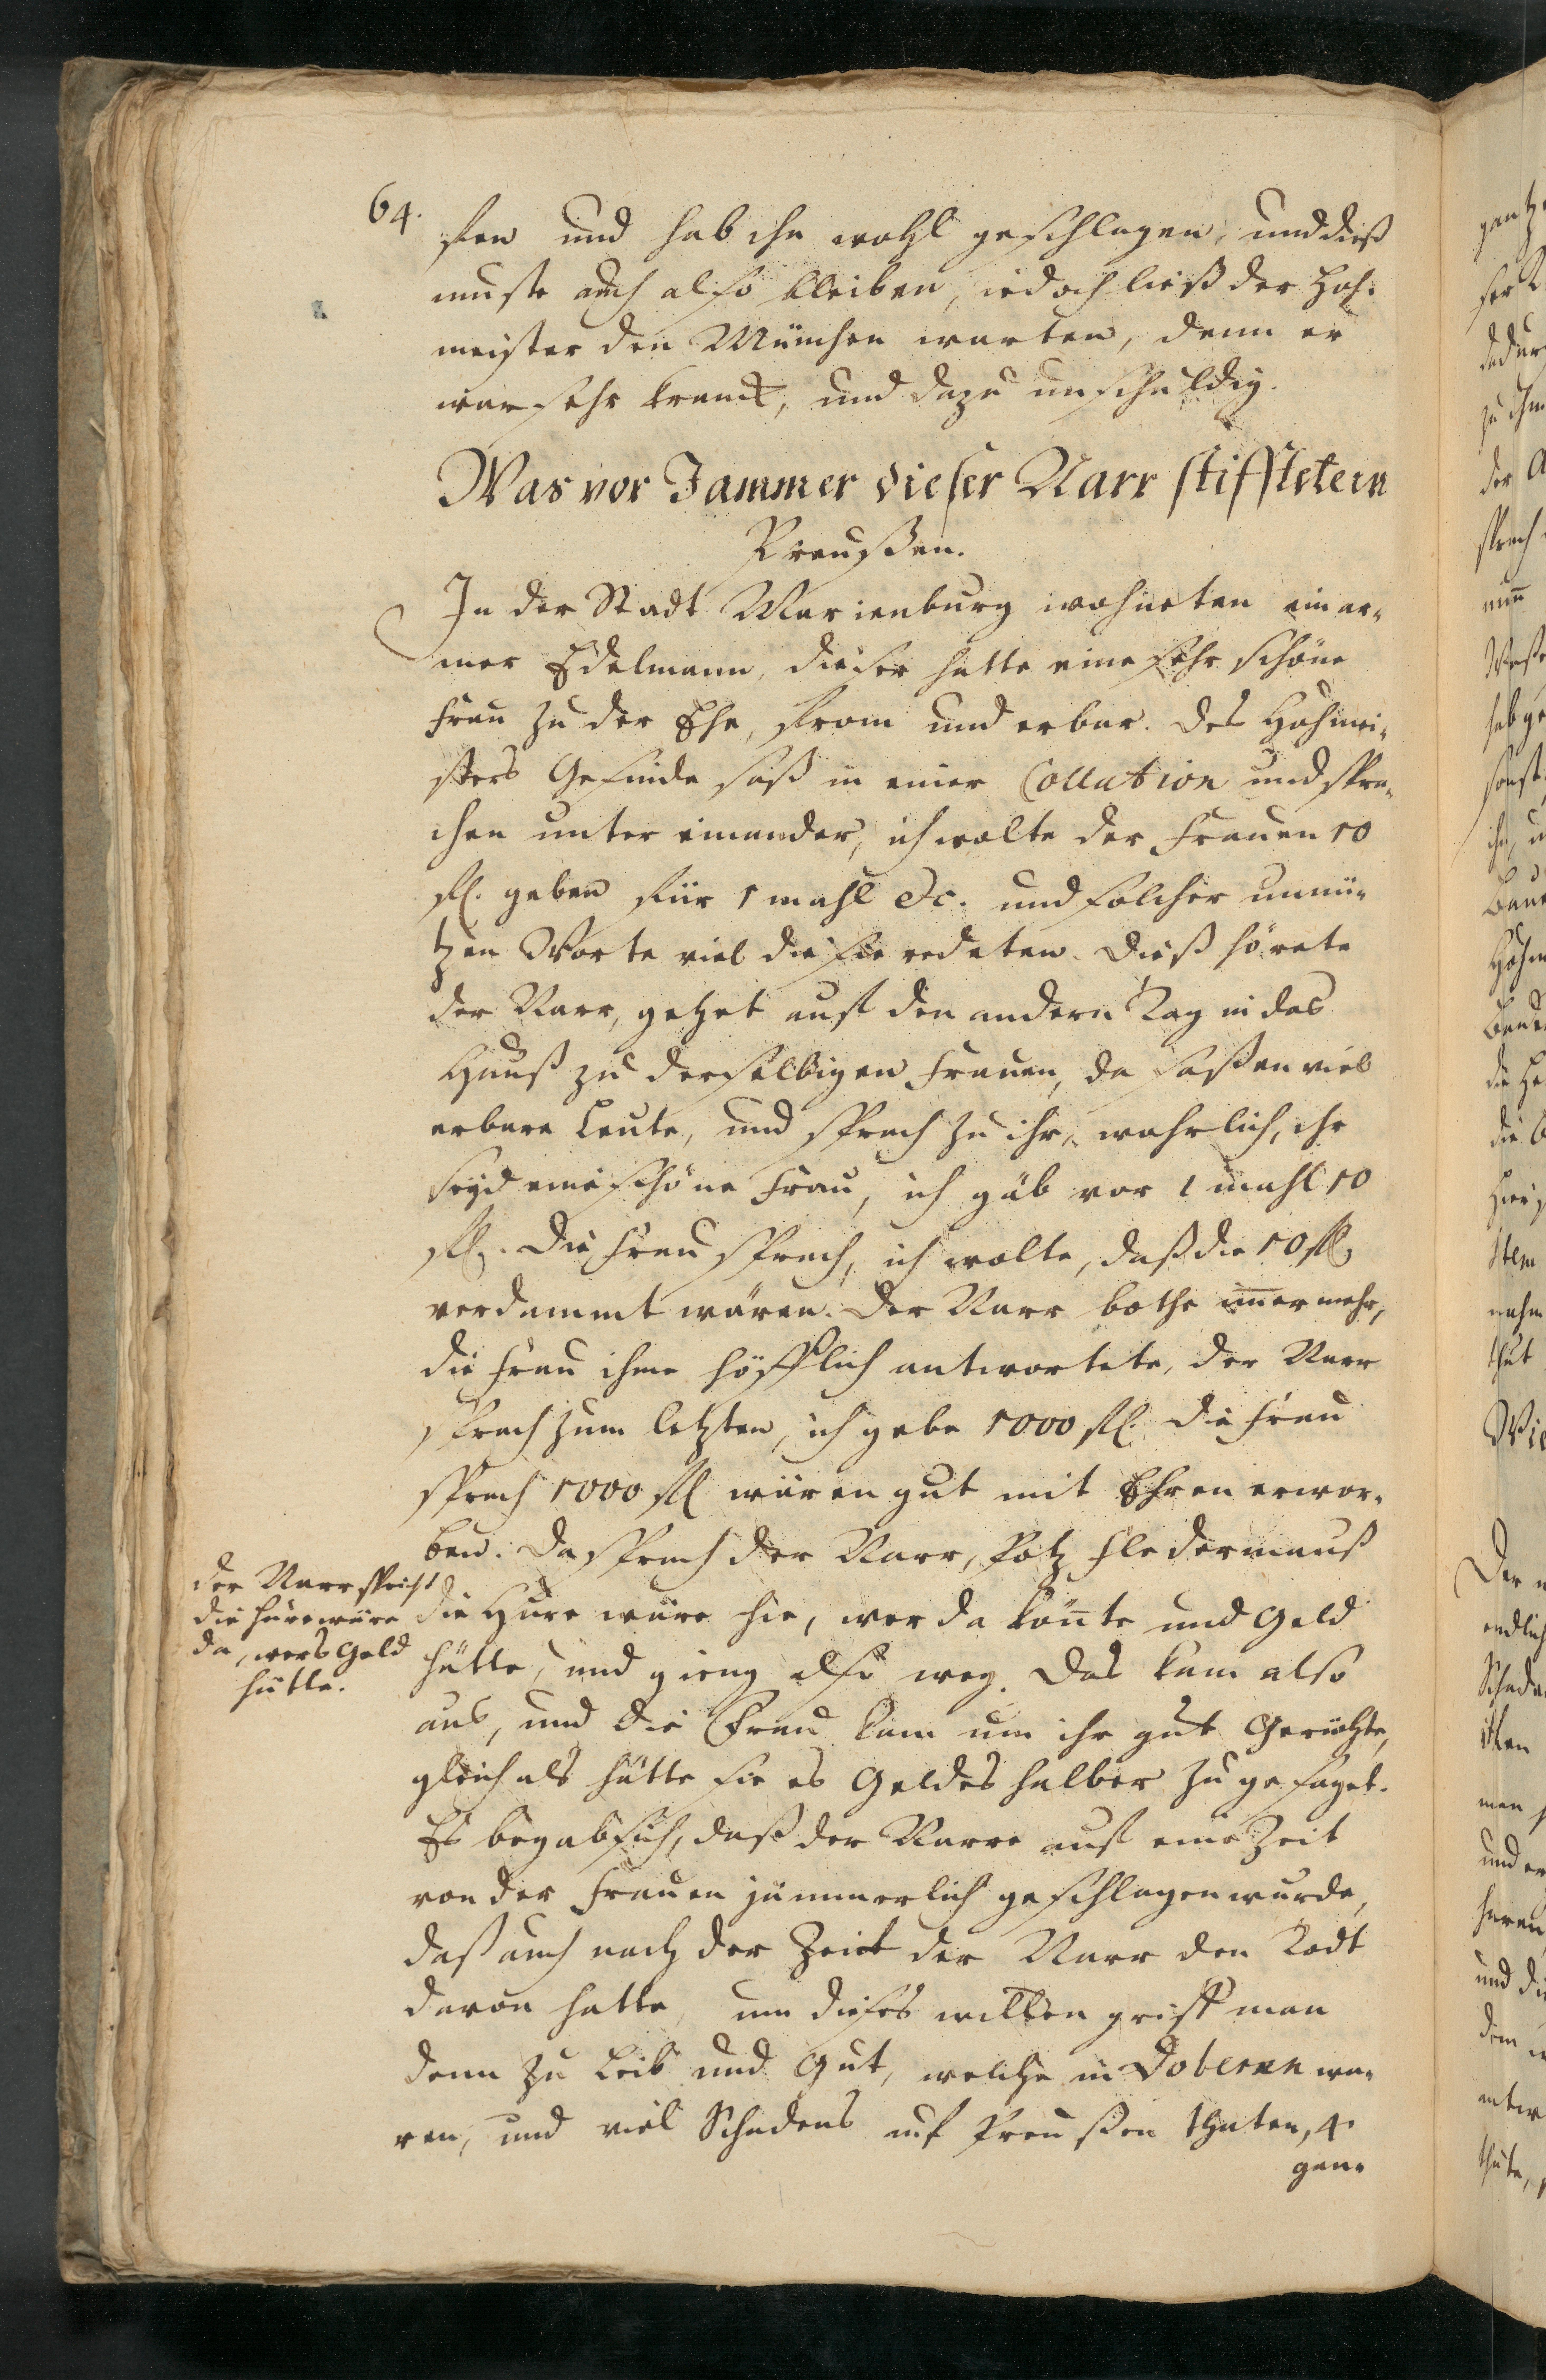 64.
sen und hab ihn wohl geschlagen, und dieß
muste auch also bleiben, iedoch ließ der Hoh-
meister den München warten, denn er
war sehr kranck, und dazu unschuldig.
Was vor Jammer dieser Narr stifftete in
Preußen.
In der Stadt Marienburg wohneten ein ar-
mer Edelmann, dieser hatte eine sehr schöne
Frau zu der Ehe, from und erbar. Des Hohmei-
sters Gesinde saß in einer Collation und spra-
chen unter einander, ich wolte der Frauen 10
fl. geben für 1 mahl &c. und solcher unnü-
tzen Worte viel die sie redeten. Dieß hörete
der Narr, gehet auf den andern Tag in das
Hauß zu derselbigen Frauen, da saßen viel
erbare Leute, und sprach zu ihr, wahrlich, ihr
seyd eine schöne Frau, ich gäb vor 1 mahl 10
fl. Die Frau sprach, ich wolte, daß die 10 fl.
verdammt wären. Der Narr bothe im̅er mehr,
die Frau ihme höfflich antwortete, der Narr
sprach zum letzten, ich gebe 1000 fl. die Frau
sprach 1000 fl wären gut mit Ehren erwor-
ben. Da sprach der Narr, Potz Fledermauß
die Hure wäre hie, wer da kön̅te und Geld
hätte, und gieng also weg. Das kam also
aus, und die Frau kam um ihr gut Gerüchte,
gleich als hätte sie es Geldes halber zu gesaget.
Es begab sich, daß der Narre auf eine Zeit
von der Frauen jämmerlich geschlagen wurde,
daß auch nach der Zeit der Narr den Todt
davon hatte, um dieses willen griff man
denn zu Leib und Gut, welche in Doberan wa-
ren, und viel Schadens auf Preußen thaten,
gen-
der Narr spricht
die Hure wäre
da, wers Geld
hätte.